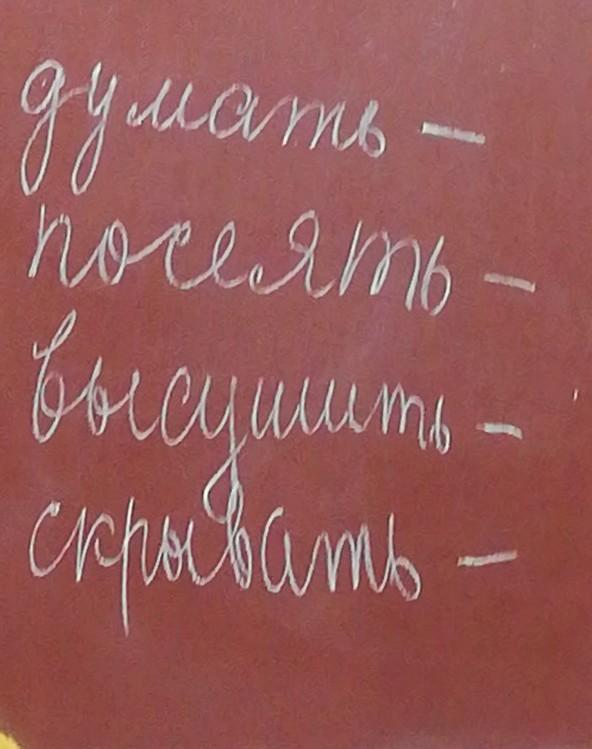 думать –
посеять –
высушить –
скрывать –